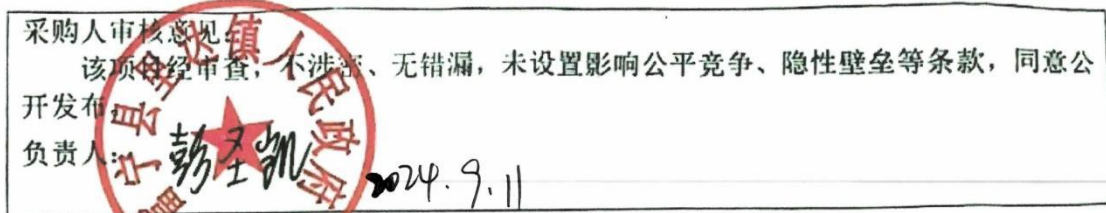 采购人审核意见:
该项目经审查,不涉密、无错漏,未设置影响公平竞争、隐性壁垒等条款,同意公
开发布。
负责人:
2024.9.11
宁县里达镇人民政府